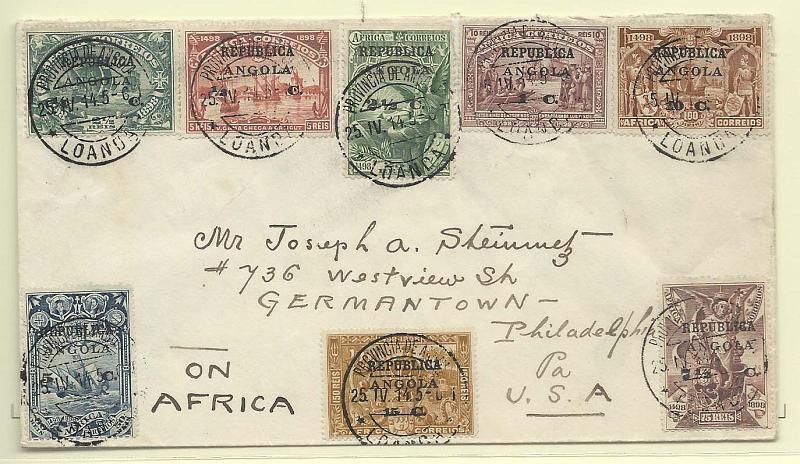 1498 1898
REPUBLICA
ANGOLA
C.
LOANDA
REPUBLICA
ANGOLA
25 IV 14 5-6
LOANDA
AFRICA CORREIOS
REPUBLICA
ANGOLA
2½ C.
25 IV 14 5-6
LOANDA
10 REIS 10
REPUBLICA
ANGOLA
1 C.
LOANDA
1498 1898
REPUBLICA
ANGOLA
10 C.
100
AFRICA CORREIOS
LOANDA
Mr Joseph A. Steinmetz
# 736 Westview St
GERMANTOWN —
Philadelphia
Pa
U.S.A
ON
AFRICA
REPUBLICA
ANGOLA
C.
AFRICA
REPUBLICA
ANGOLA
15 C.
25 IV 14 5-6
150 REIS
CORREIOS
LOANDA
REPUBLICA
ANGOLA
7½ C.
1498 1898
75 REIS